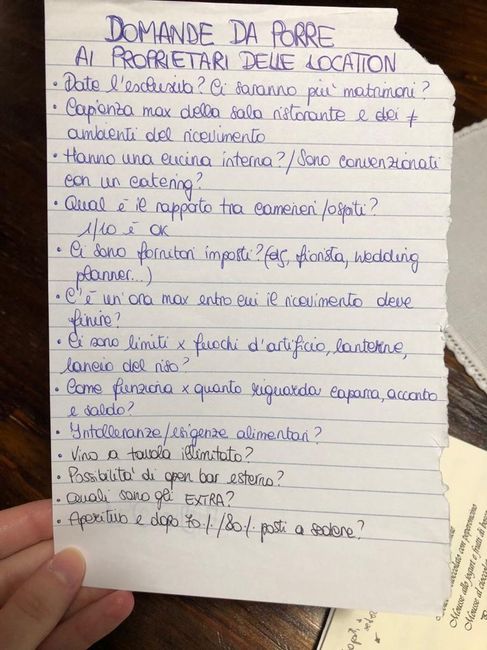 DOMANDE DA PORRE
AI PROPRIETARI DELLE LOCATION
• Date l'esclusiva? Ci saranno più matrimoni?
• Capienza max della sala ristorante e dei ≠
ambienti del ricevimento
• Hanno una cucina interna?/Sono convenzionati
con un catering?
• Qual è il rapporto tra camerieri/ospiti?
1/10 è OK
• Ci sono fornitori imposti? (dj, fiorista, wedding
planner...)
• C'è un'ora max entro cui il ricevimento deve
finire?
• Ci sono limiti x fuochi d'artificio, lanterne,
lancio del riso?
• Come funziona x quanto riguarda caparra, acconto
e saldo?
• Intolleranze/esigenze alimentari?
• Vino a tavola illimitato?
• Possibilità di open bar esterno?
• Quali sono gli EXTRA?
• Aperitivo e dopo 70%/80% posti a sedere?
cioccolato con peperoncino
Mousse allo yogurt e frutti di bosco
Mousse al cioccola